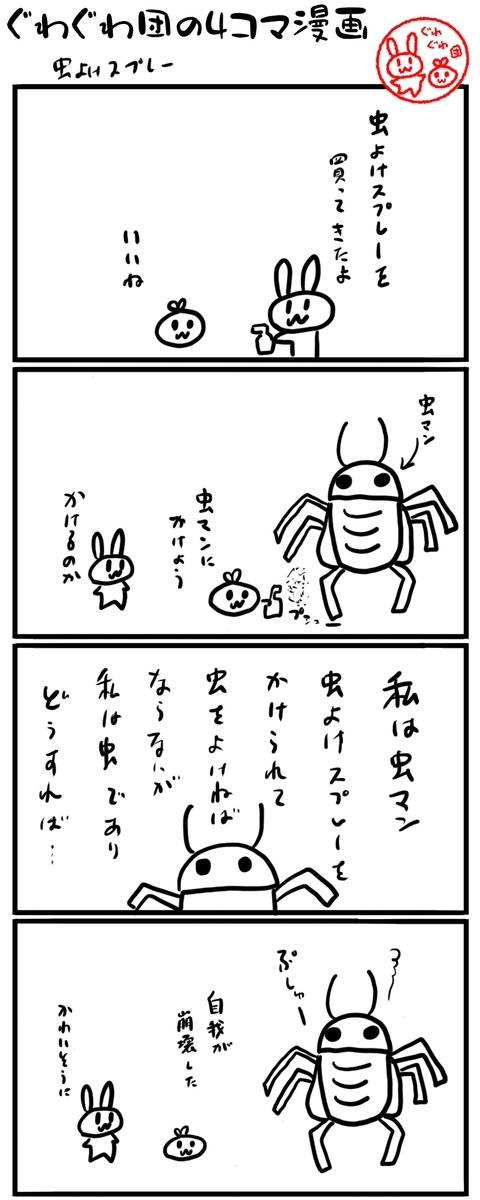 ぐわぐわ団の4コマ漫画
ぐわ
ぐわ
団
虫よけスプレー
虫よけスプレーを
買ってきたよ
いいね
虫マン
虫マンに
かけよう
プシュー
かけるのか
私は虫マン
虫よけスプレーを
かけられて
虫をよけねば
ならないが
私は虫であり
どうすれば…
ぷしゅー
自我が
崩壊した
かわいそうに